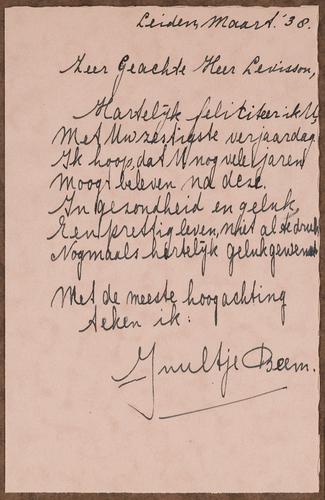 Leiden, Maart.'38.
Zeer Geachte Heer Levisson,
Hartelijk feliciteer ik U,
Met Uw zestigste verjaardag
Ik hoop, dat U nog vele jaren
Moogt beleven na deze.
In gezondheid en geluk,
Een prettig leven, niet al te druk
Nogmaals hartelijk gelukgewenst
Met de meeste hoogachting
teken ik:
Beem.